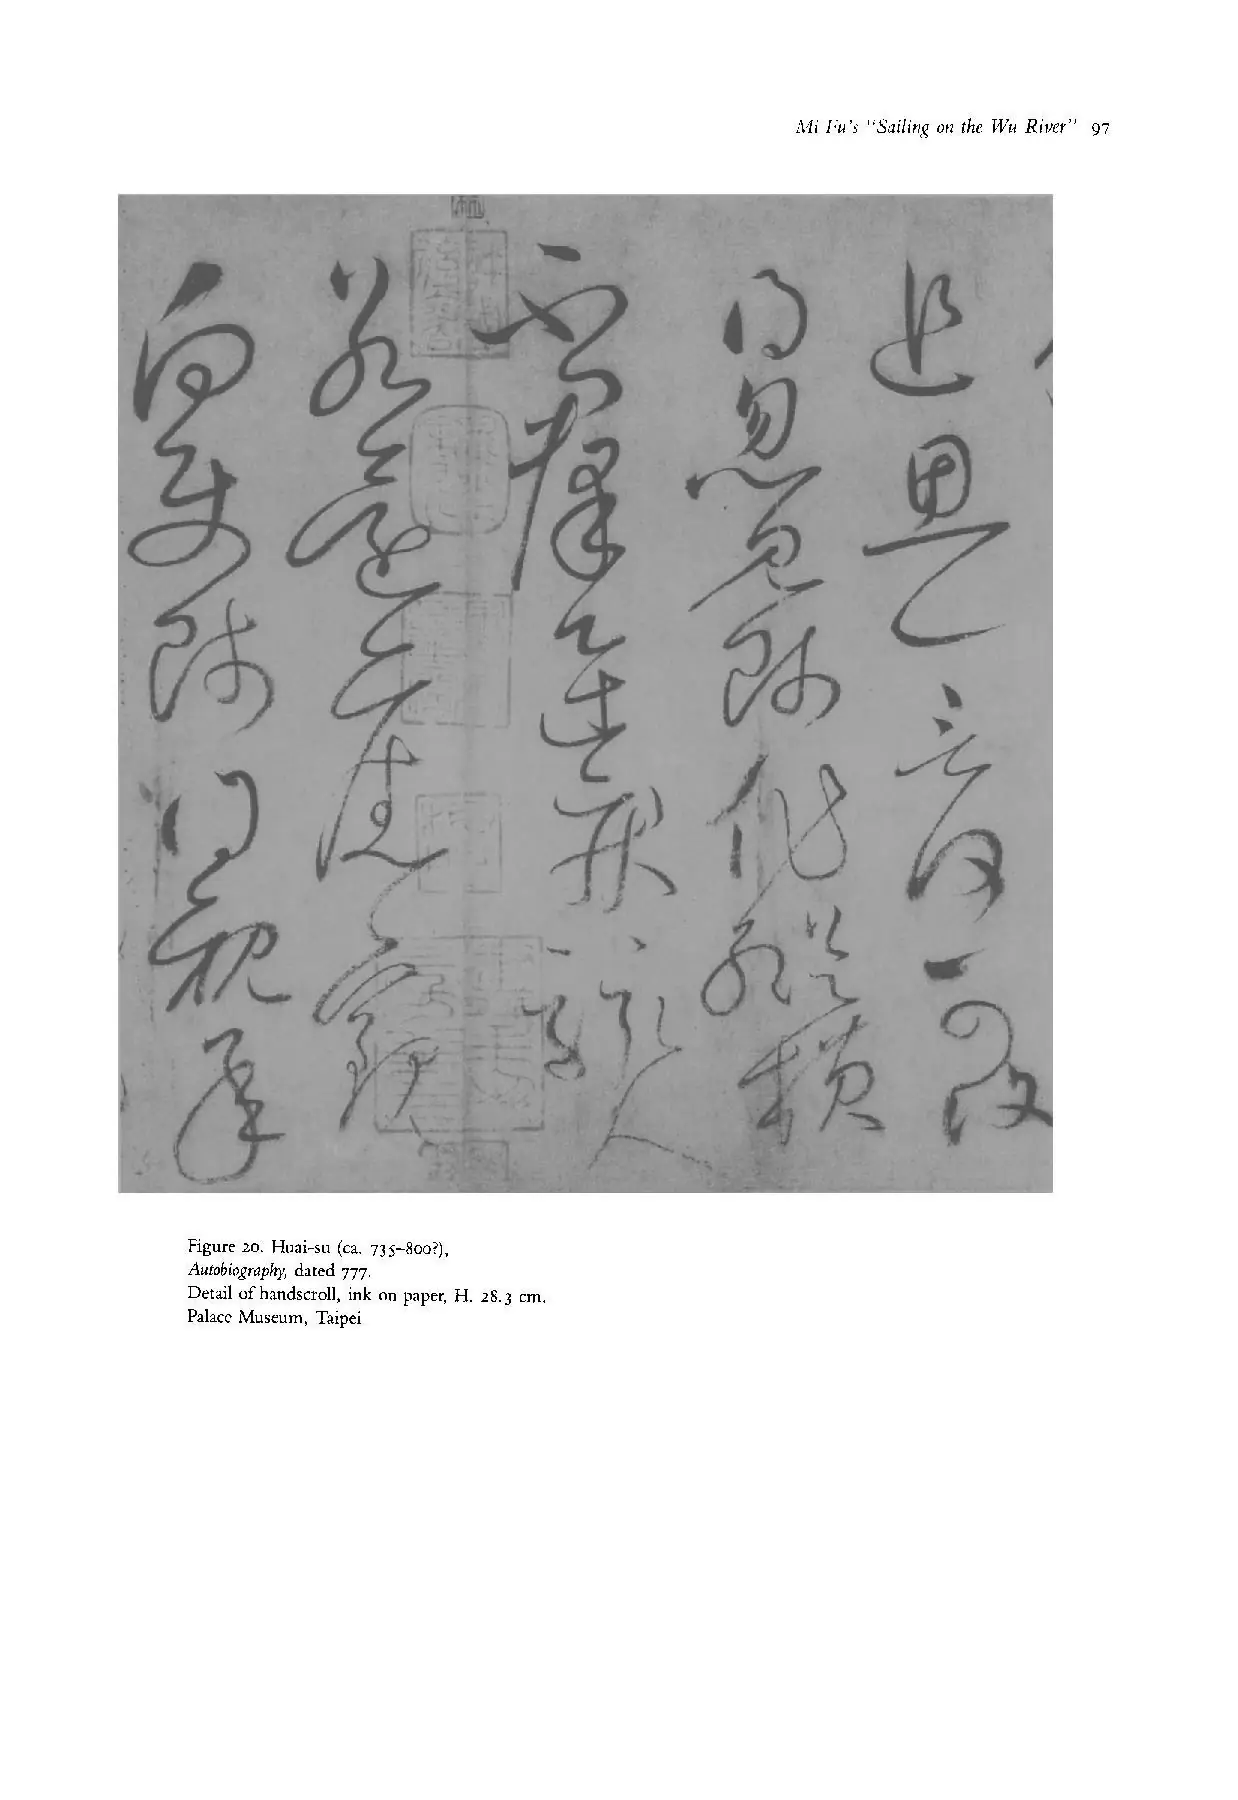 Mi Fu's "Sailing on the Wu River" 97
追思一言何可復
得忽見師作縱橫
不群迅疾駭人
若還舊觀
向使師得親承
Figure 20. Huai-su (ca. 735–800?),
Autobiography, dated 777.
Detail of handscroll, ink on paper, H. 28.3 cm.
Palace Museum, Taipei